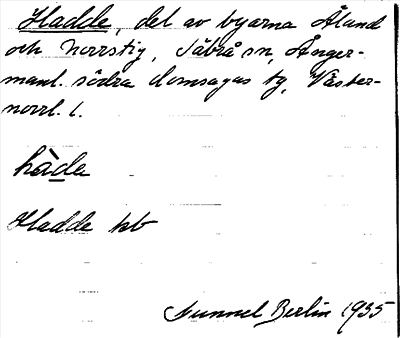 Hadde, del av byarna Åland
och Norrstig, Säbrå sn, Ånger-
manl. södra domsagas tg, Väster-
norrl. l.
hàde
Hadde kb
Gunnel Berlin 1935